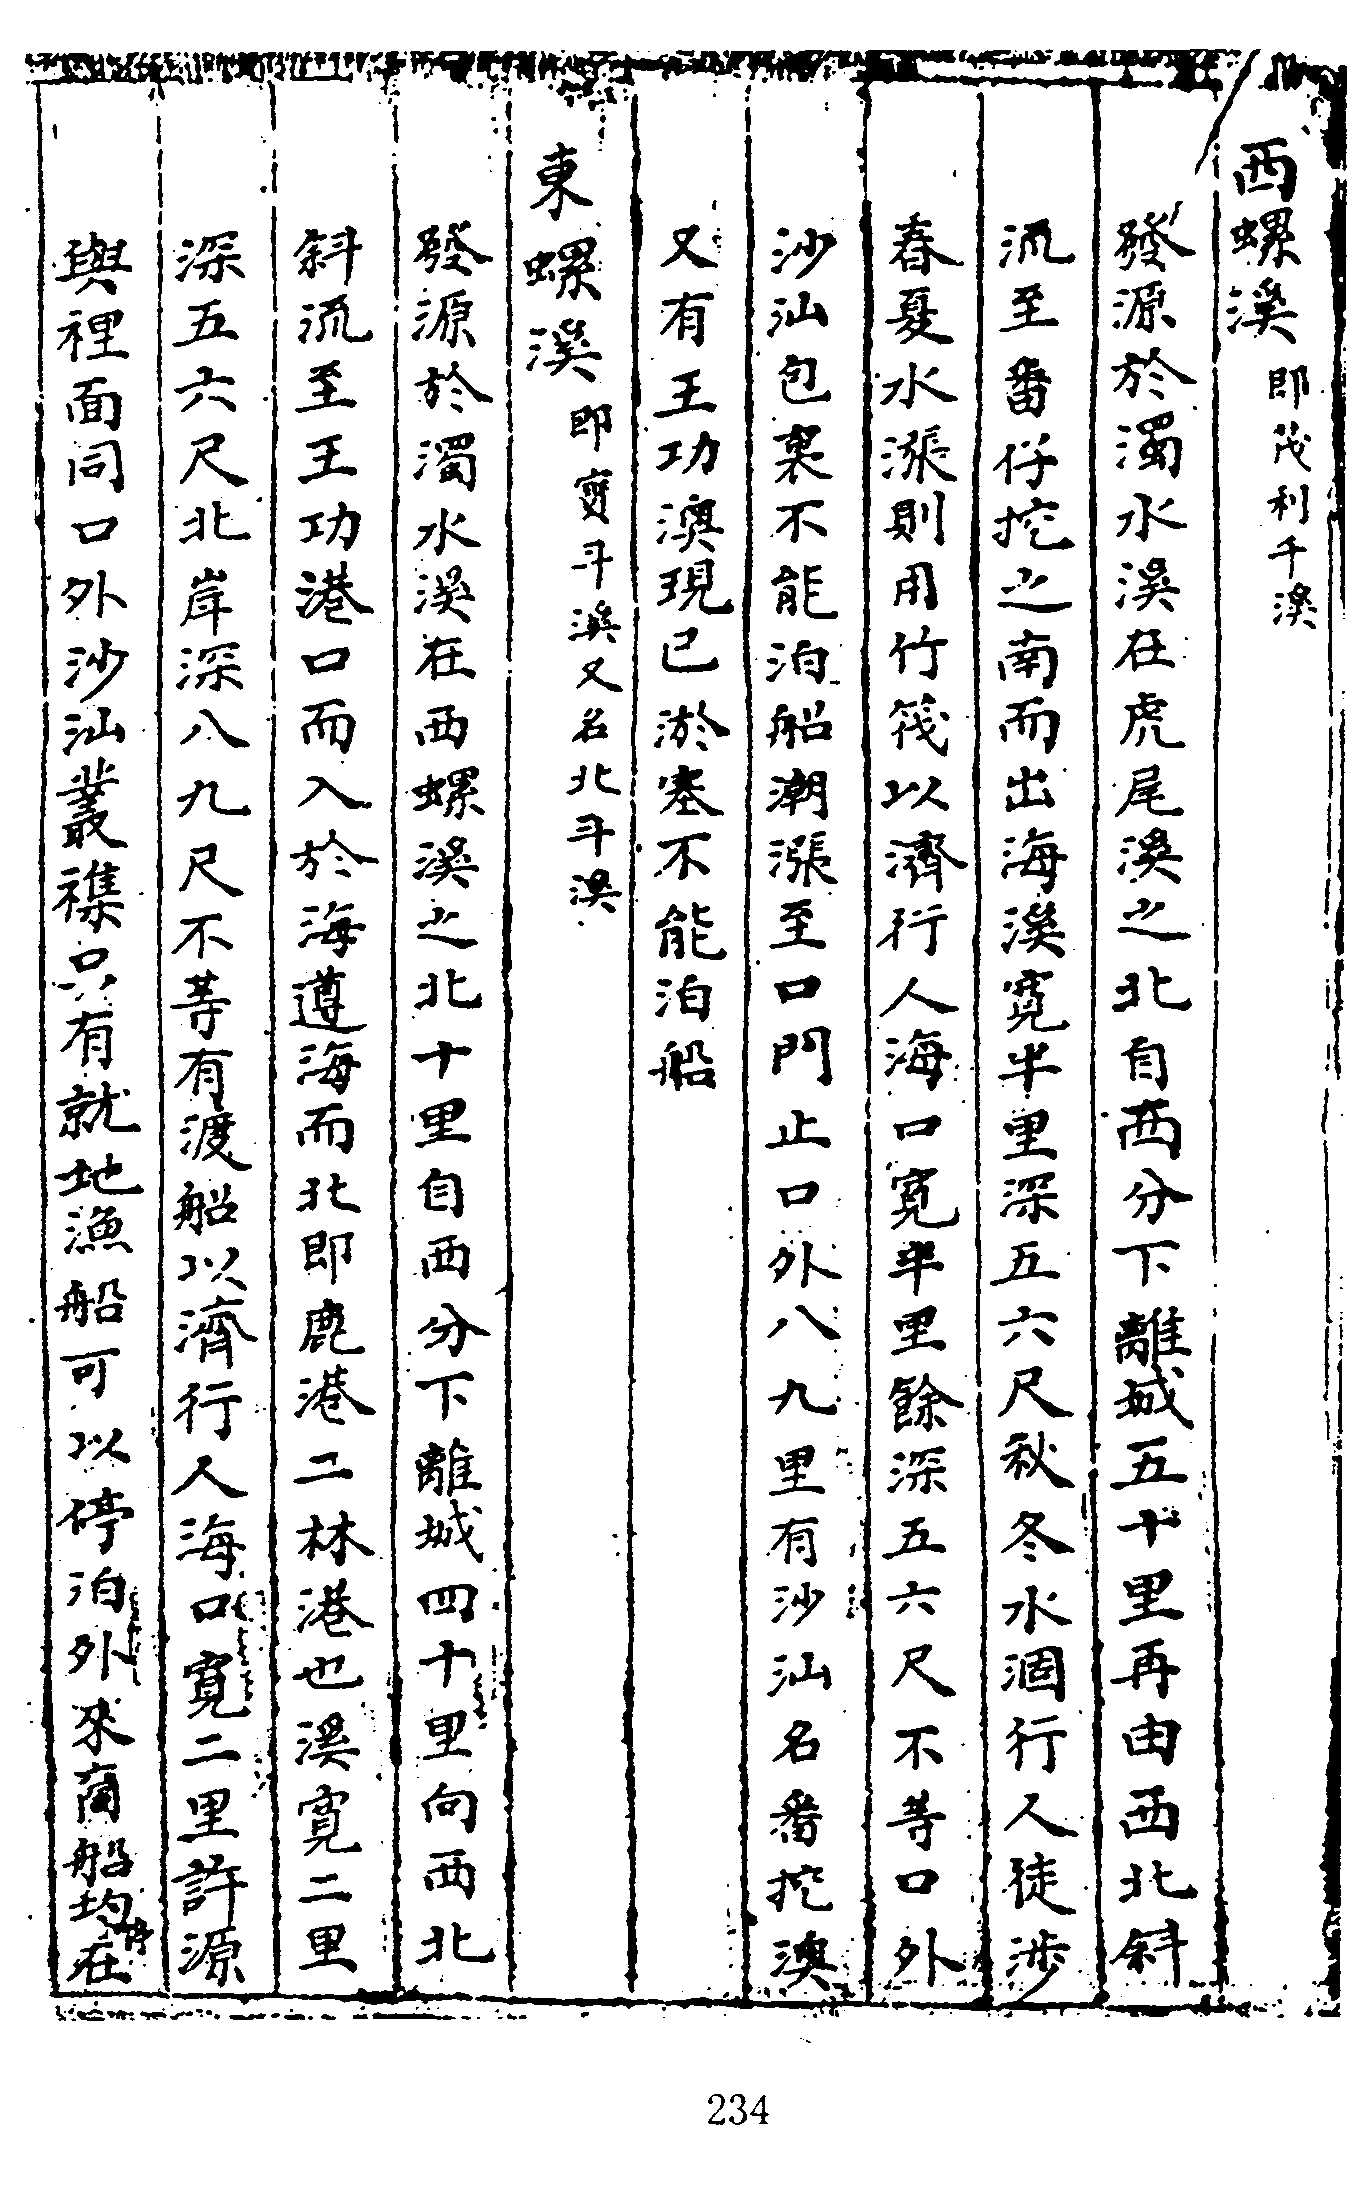 西螺溪即茂利干溪
發源於濁水溪在虎尾溪之北自西分下離城五十里再由西北斜
流至番仔挖之南而出海溪寬半里深五六尺秋冬水涸行人徒涉
春夏水漲則用竹筏以濟行人海口寬半里餘深五六尺不等口外
沙汕包裹不能泊船潮漲至口門止口外八九里有沙汕名番挖澳
又有王功澳現已淤塞不能泊船
東螺溪即寶斗溪又名北斗溪
發源於濁水溪在西螺溪之北十里自西分下離城四十里向西北
斜流至王功港口而入於海遵海而北即鹿港二林港也溪寬二里
深五六尺北岸深八九尺不等有渡船以濟行人海口寬二里許源
與裡面同口外沙汕叢襍只有就地漁船可以停泊外來商船均在
234